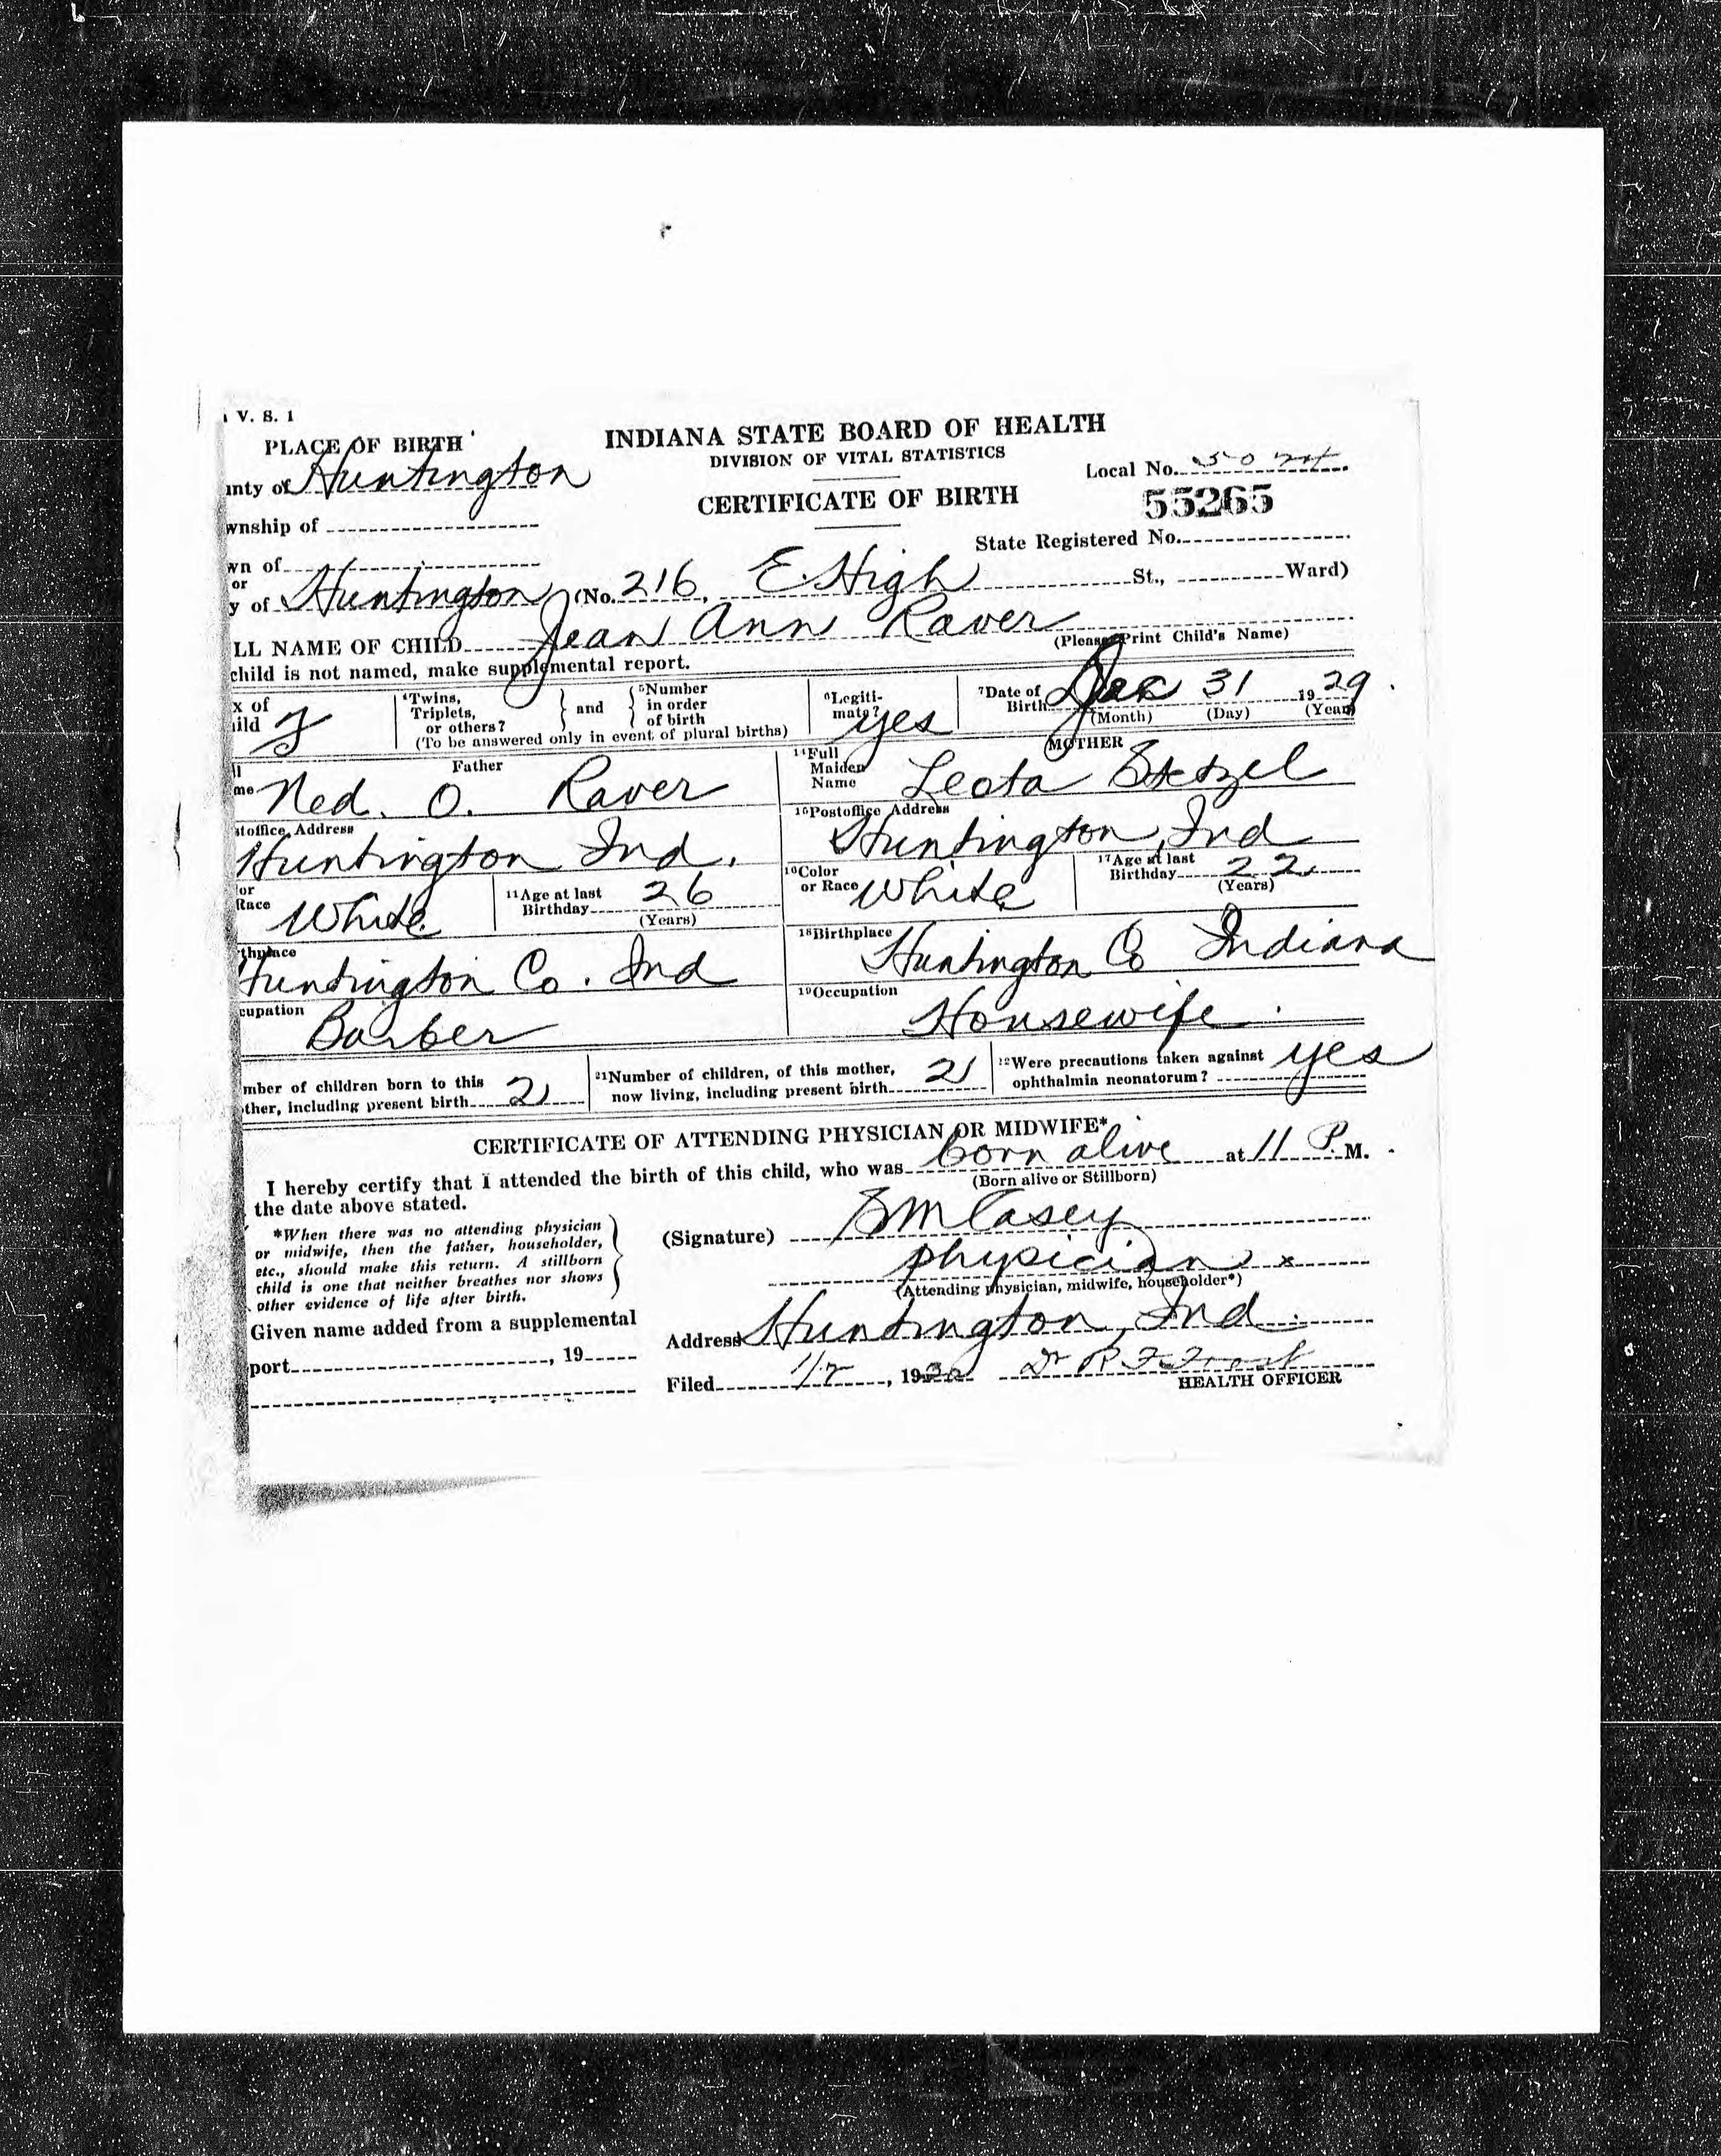 V. S. 1
PLACE OF BIRTH
INDIANA STATE BOARD OF HEALTH
DIVISION OF VITAL STATISTICS
unty of Huntington
Local No.
CERTIFICATE OF BIRTH
55265
wnship of
State Registered No.
wn of
or
y of Huntington (No. 216, E. High St., Ward)
LL NAME OF CHILD Jean Ann Raver
(Please Print Child's Name)
child is not named, make supplemental report.
x of
ild F
4Twins,
Triplets,
or others?
and
5Number
in order
of birth
(To be answered only in event of plural births)
6Legiti-
mate? yes
7Date of
Birth Dec 31 1929
(Month) (Day) (Year)
Father
me Ned. O. Raver
MOTHER
14Full
Maiden
Name Leota Stetzel
stoffice Address
Huntington Ind.
15Postoffice Address
Huntington, Ind
or
Race White
11Age at last
Birthday 26
(Years)
16Color
or Race White
17Age at last
Birthday 22
(Years)
thplace
Huntington Co. Ind
18Birthplace
Huntington Co Indiana
cupation
Barber
19Occupation
Housewife.
mber of children born to this
ther, including present birth 2
21Number of children, of this mother,
now living, including present birth 2
22Were precautions taken against
ophthalmia neonatorum? yes
CERTIFICATE OF ATTENDING PHYSICIAN OR MIDWIFE*
I hereby certify that I attended the birth of this child, who was born alive at 11 P. M.
(Born alive or Stillborn)
the date above stated.
*When there was no attending physician
or midwife, then the father, householder,
etc., should make this return. A stillborn
child is one that neither breathes nor shows
other evidence of life after birth.
(Signature) BM Casey
physician x
(Attending physician, midwife, householder*)
Given name added from a supplemental
port , 19
Address Huntington, Ind.
Filed 1/2, 1930 Dr R. F. Frost
HEALTH OFFICER